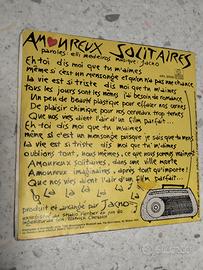 AMOUREUX SOLITAIRES
paroles: elli medeiros musique: Jacno
Eh toi dis moi que tu m'aimes
même si c'est un mensonge et qu'on n'a pas une chance
La vie est si triste dis moi que tu m'aimes
tous les jours sont les mêmes j'ai besoin de romance
Un peu de beauté plastique pour effacer nos cernes
De plaisir chimique pour nos cerveaux trop ternes
Que nos vies aient l'air d'un film parfait...
Eh toi dis moi que tu m'aimes
même si c'est un mensonge puisque je sais que tu mens
La vie est si triste dis moi que tu m'aimes
oublions tout, nous mêmes, ce que nous sommes vraiment
Amoureux solitaires, dans une ville morte
Amoureux imaginaires, après tout qu'importe
Que nos vies aient l'air d'un film parfait...
La la la la la
produit et arrangé par Jacno